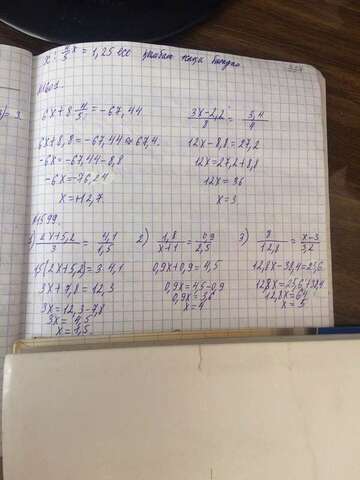 x : 4/5 x = 1,25 есе қымбат
N1601.
6x+8 4/5 = -67,44
6x+8,8=-67,44
-6x=-67,44-8,8
-6x=-76,24
x=+12,7
3x-2,2/8 = 3,4/4
12x-8,8=27,2
12x=27,2+8,8
12x=36
x=3
N1599.
1) 2x+5,2/3 = 4,1/1,5
1,5(2x+5,2)=3·4,1
3x+7,8=12,3
3x=12,3-7,8
3x=4,5
x=1,5
2) 1,8/x+1 = 0,9/2,5
0,9x+0,9=4,5
0,9x=4,5-0,9
0,9x=3,6
x=4
3) 8/12,8 = x-3/3,2
12,8x-38,4=25,6
12,8x=25,6+38,4
12,8x=64
x=5